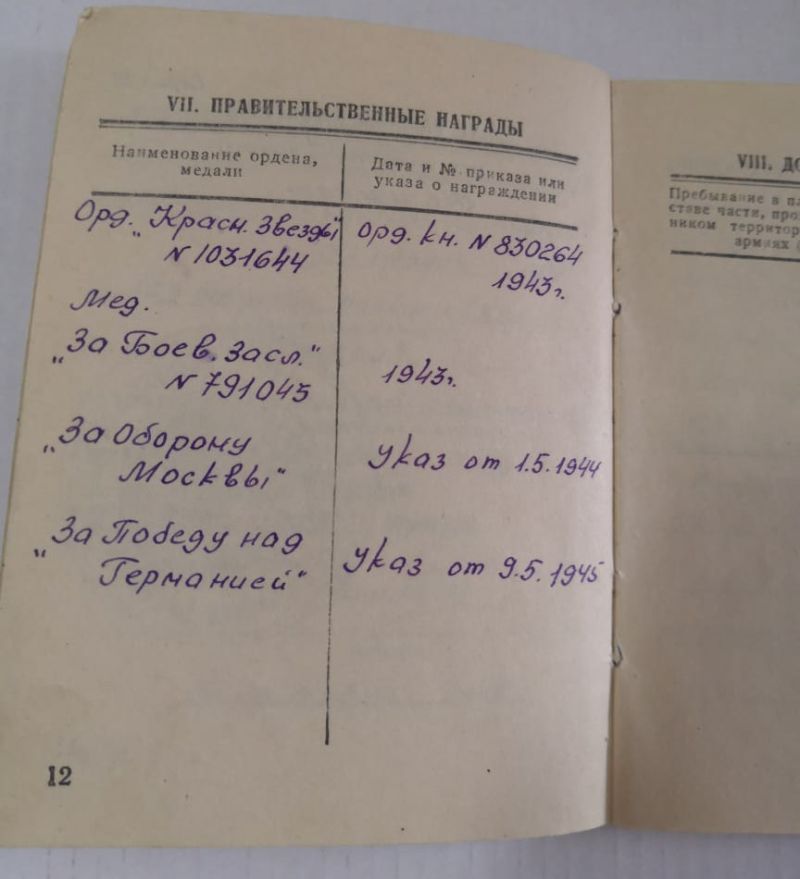 VII. ПРАВИТЕЛЬСТВЕННЫЕ НАГРАДЫ
Наименование ордена,
медали
Дата и № приказа или
указа о награждении
Орд. „Красн. Звезды"
N 1031644
Орд. кн. N 830264
1943г.
Мед.
„За Боев. Засл."
N 791045
1943г.
„За Оборону
Москвы"
Указ от 1.5.1944
„За Победу над
Германией"
Указ от 9.5.1945
12
VIII. ДО
Пребывание в пл
стве части, про
ником территор
армиях